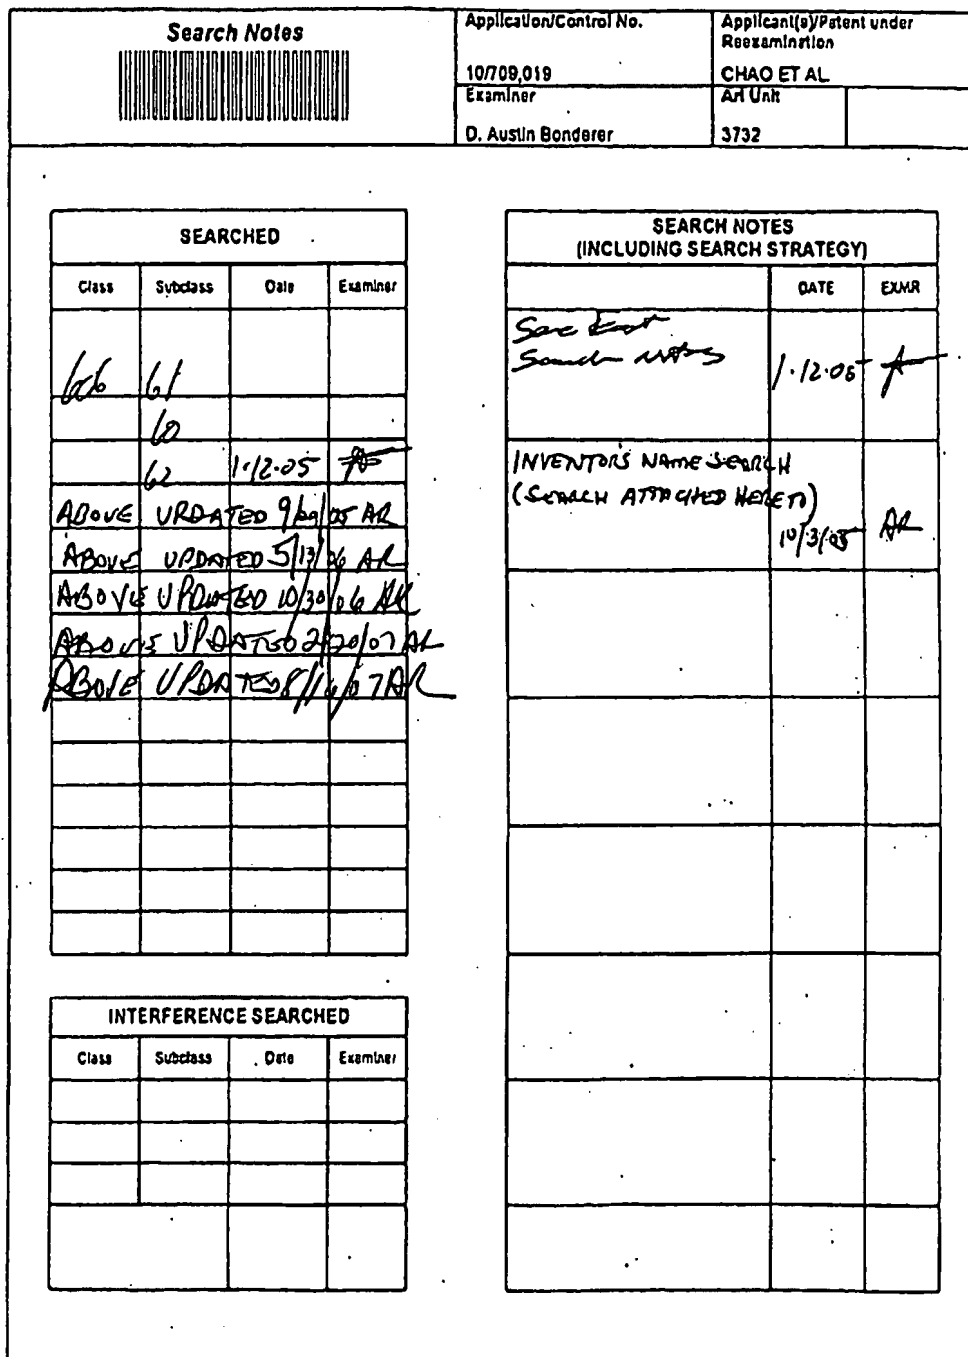 Search Notes
Application/Control No.
10/709,019
Applicant(s)/Patent under
Reexamination
CHAO ET AL.
Examiner
D. Austin Bonderer
Art Unit
3732
SEARCHED
Class Subclass Date Examiner
606 61
60
62 1.12.05
ABOVE UPDATED 9/29/05 AR
ABOVE UPDATED 5/13/06 AR
ABOVE UPDATED 10/30/06 AR
ABOVE UPDATED 2/20/07 AR
ABOVE UPDATED 8/16/07 AR
INTERFERENCE SEARCHED
Class Subclass Date Examiner
SEARCH NOTES
(INCLUDING SEARCH STRATEGY)
DATE EXMR
See East
Search notes
1.12.05
INVENTOR'S NAME SEARCH
(SEARCH ATTACHED HERETO)
10/3/05 AR